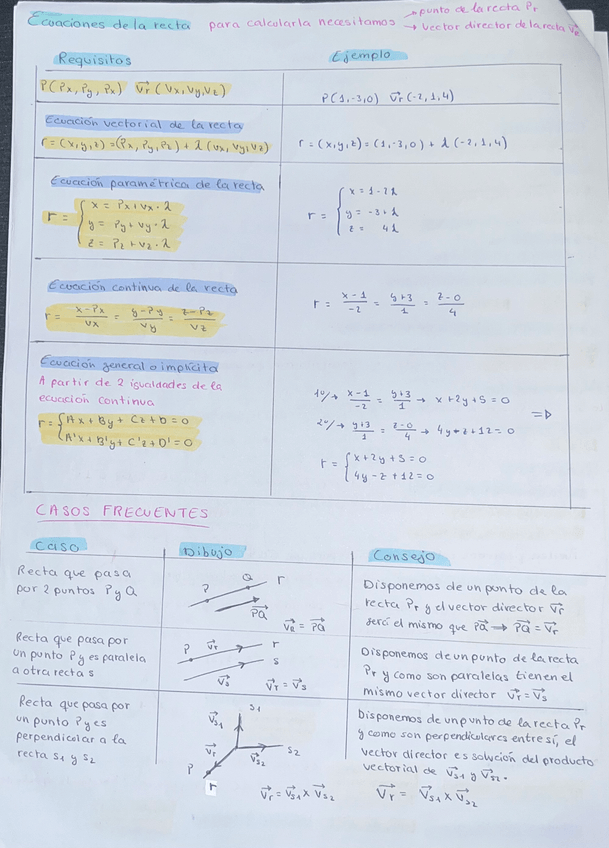 Ecuaciones de la recta para calcularla necesitamos → punto de la recta Pr
→ vector director de la recta v⃗r
Requisitos
Ejemplo
P(Px, Py, Px) v⃗r (Vx, Vy, Vz)
P(1,-3,0) v⃗r(-2,1,4)
Ecuación vectorial de la recta
r = (x,y,z) = (Px, Py, Pz) + λ (vx, vy, vz)
r = (x,y,z) = (1,-3,0) + λ (-2,1,4)
Ecuación paramétrica de la recta
r = { x = Px + Vx · λ
y = Py + Vy · λ
z = Pz + Vz · λ
r = { x = 1 - 2λ
y = -3 + λ
z = 4λ
Ecuación continua de la recta
r = x-Px/Vx = y-Py/Vy = z-Pz/Vz
r = x-1/-2 = y+3/1 = z-0/4
Ecuación general o implícita
A partir de 2 igualdades de la
ecuación continua
r = { Ax + By + Cz + D = 0
A'x + B'y + C'z + D' = 0
1º/→ x-1/-2 = y+3/1 → x + 2y + 5 = 0
2º/→ y+3/1 = z-0/4 → 4y - z + 12 = 0
⇒
r = { x + 2y + 5 = 0
4y - z + 12 = 0
CASOS FRECUENTES
Caso
Dibujo
Consejo
Recta que pasa
por 2 puntos P y Q
P Q r
PQ⃗
v⃗r = PQ⃗
Disponemos de un punto de la
recta Pr y el vector director v⃗r
será el mismo que PQ⃗ → PQ⃗ = v⃗r
Recta que pasa por
un punto P y es paralela
a otra recta s
P v⃗r r
s
v⃗s v⃗r = v⃗s
Disponemos de un punto de la recta
Pr y como son paralelas tienen el
mismo vector director v⃗r = v⃗s
Recta que pasa por
un punto P y es
perpendicular a la
recta s1 y s2
s1
v⃗s1
s2
v⃗r v⃗s2
P
r
v⃗r = v⃗s1 x v⃗s2
Disponemos de un punto de la recta Pr
y como son perpendiculares entre sí, el
vector director es solución del producto
vectorial de v⃗s1 y v⃗s2.
v⃗r = v⃗s1 x v⃗s2